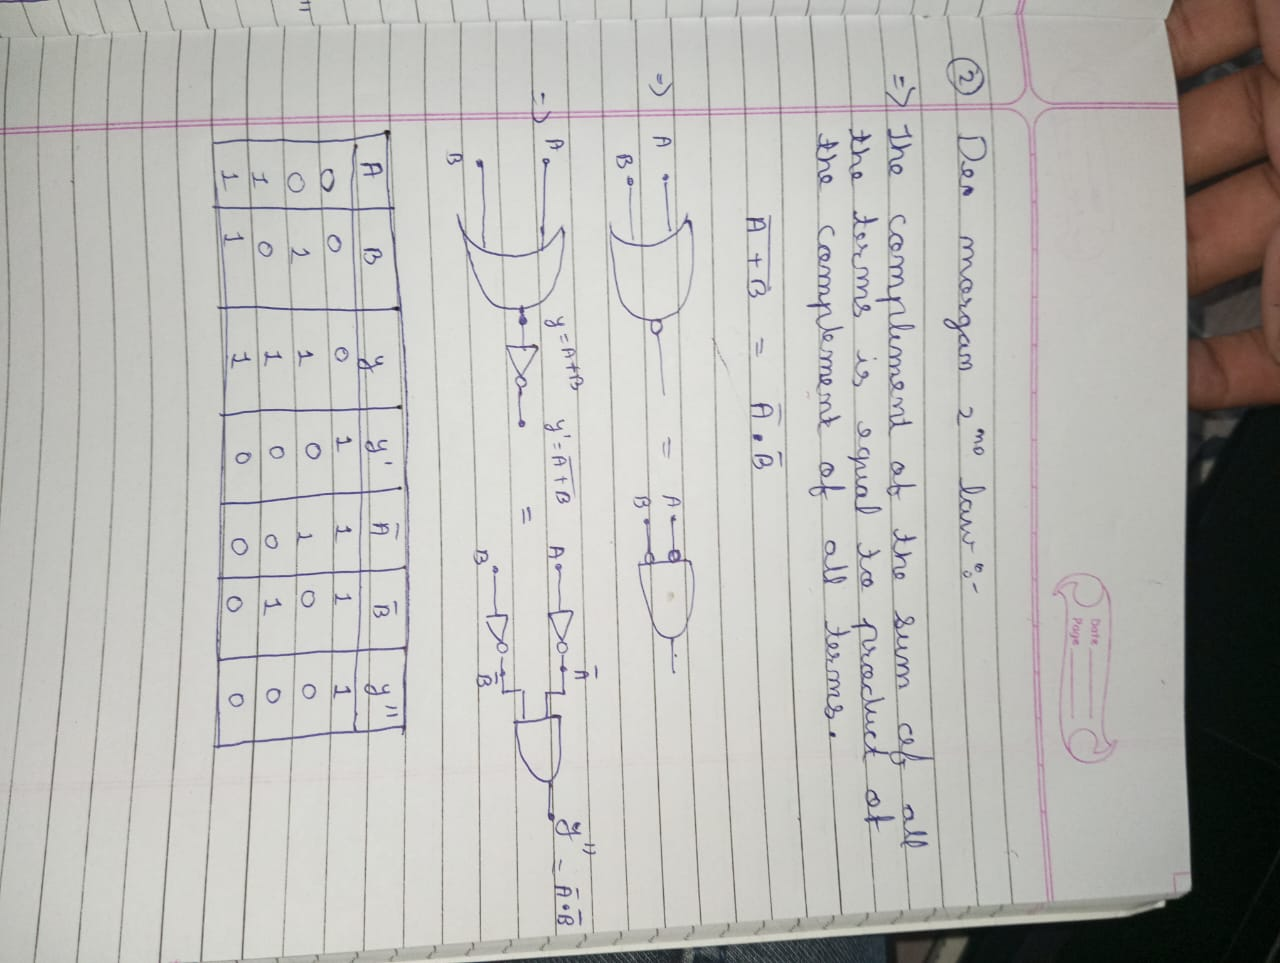 Date
Page
② De morgan 2nd law :-
=> The complement of the sum of all
the terms is equal to product of
the complement of all terms.
A̅+̅B̅ = A̅ . B̅
=> A B = A B
=> A B y = A+B y' = A̅+̅B̅ = A B A̅ B̅ y'' = A̅ . B̅
A B y y' A̅ B̅ y''
0 0 0 1 1 1 1
0 1 1 0 1 0 0
1 0 1 0 0 1 0
1 1 1 0 0 0 0